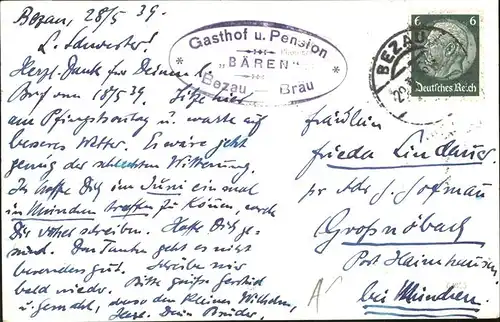 Bezau, 28/5 39.
L. Schwester!
Herzl. Dank für Deinen l.
Brief vom 18/5 39. Sitze hier
am Pfingstsonntag u. warte auf
besseres Wetter. Es wäre jetzt
genug der schlechten Witterung.
Ich hoffe Dich im Juni einmal
in München treffen zu können, werde
Dir vorher schreiben. Hoffe Dich ge-
sund. Der Tante geht es nicht
besonders gut. Schreibe mir
bald wieder. Bitte grüße
u. Gemahl, den kleinen Wilhelm,
Herzl. Dein Bruder,
Gasthof u. Pension
„BÄREN"
Bezau Bräu
BEZAU
6 6
Deutsches Reich
Fräulein
Frieda Lindauer
pr Adr J. Hofmann
Großnöbach
Post Haimhausen
bei München.